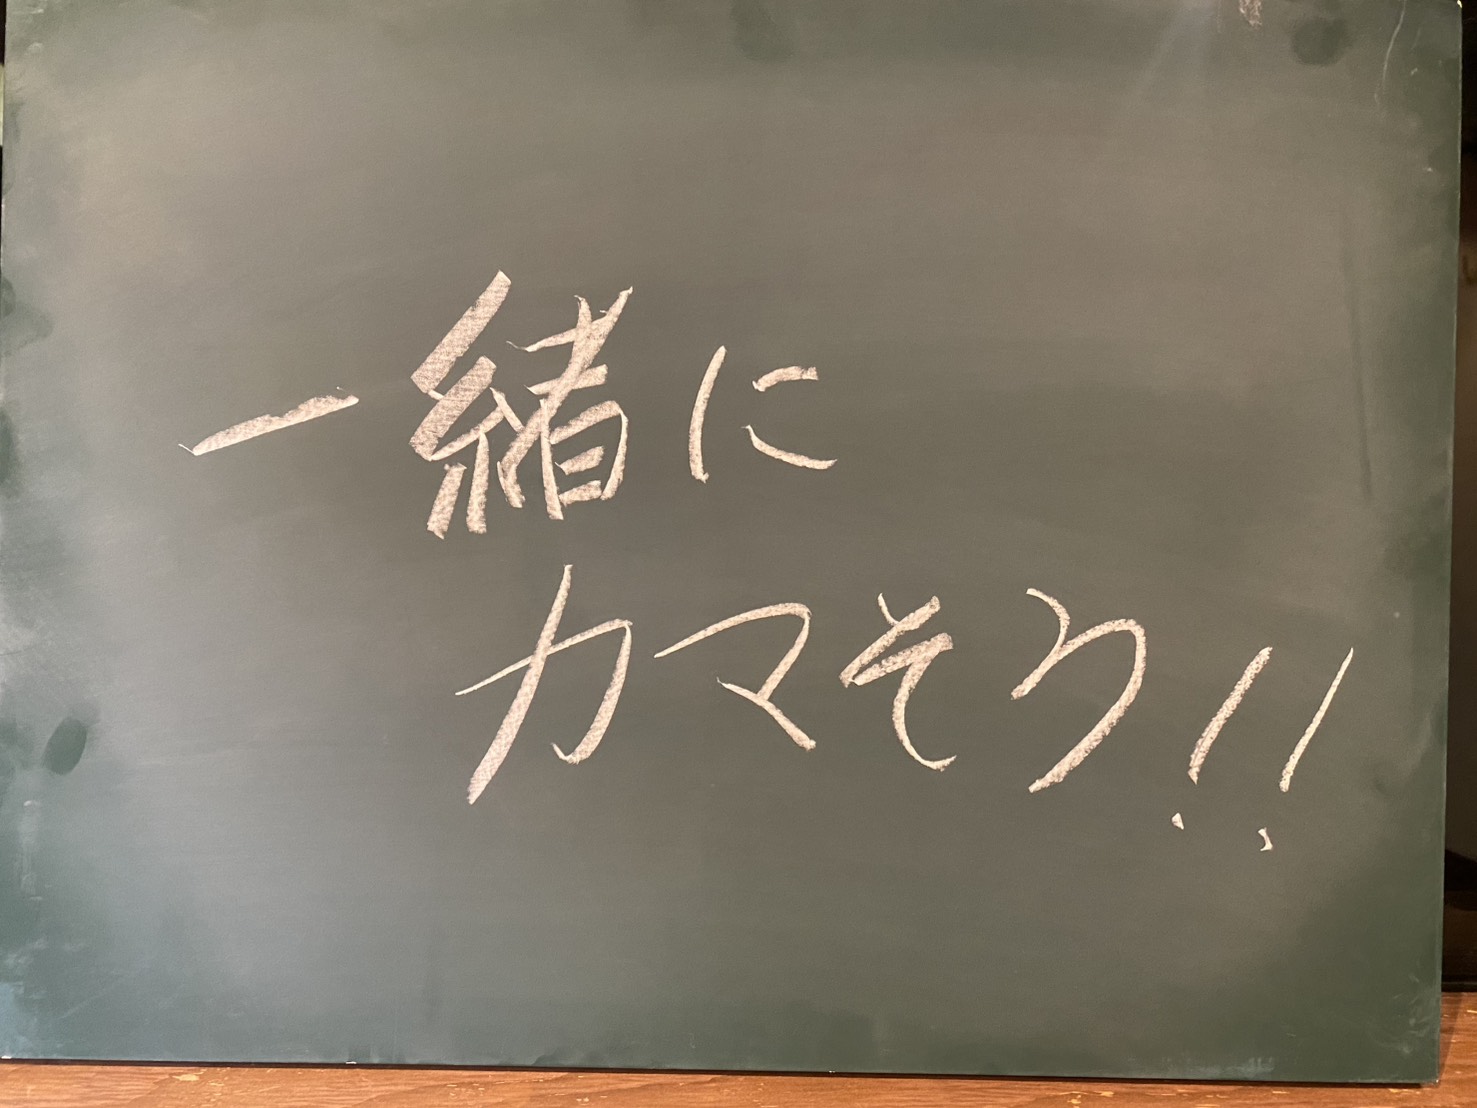 一緒に
カマそう!!